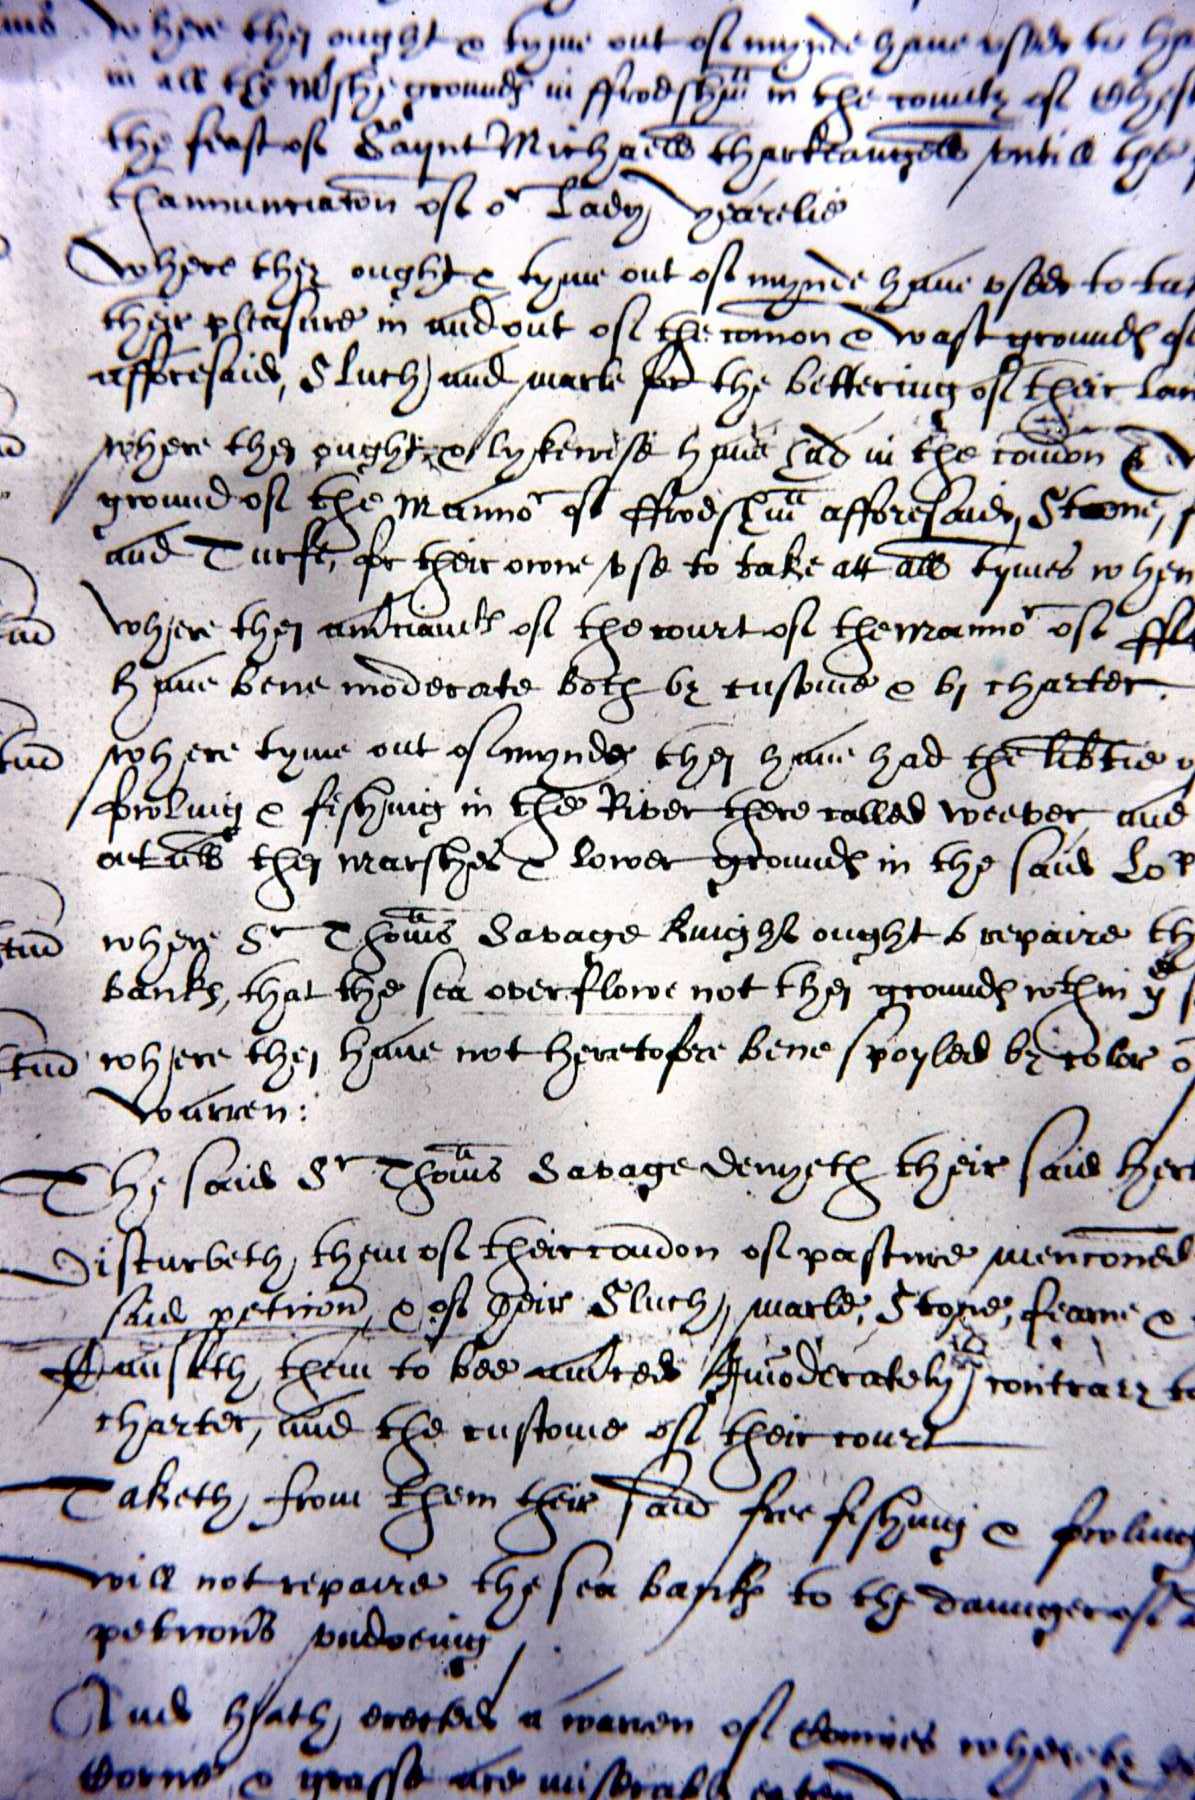 where thei ought & tyme out of mynde have used to ha
in all the mshe groundes in ffrodsham in the county of Chest
the feast of Saynt Michaell tharkeangell untill the
thannunciacon of or Lady yearelie
Where they ought & tyme out of mynde have used to ta
their pleasure in and out of the comon & wast groundes of
afforesaid, Sluch, and marle for the bettering of their lan
where thei ought & lykewise have had in the comon &
ground of the Mannor of ffrodsham afforesaid, Stone, f
and Turfe, for their owne use to take att all tymes when
Where thei amciamts of the court of the mannor of ffr
have bene moderate both by custome & bi charter.
where tyme out of mynde thei have had the libtie o
fowling & fishing in the River there called weever and
at all thei marshes & lower groundes in the said Lo
tum where Sr Thomas Savage Knight ought to repaire th
bankes, that the sea overflowe not thei groundes wthin ye s
tum where thei have not heretofore bene spoyled by color o
Warren:
The said Sr Thomas Savage denyeth their said her
Disturbeth them of their comon of pasture menconed
said peticon, & of their Sluch, marle, Stone, fearne &
Causeth them to bee amced Imoderately contrary to
charter, and the custome of their court
Taketh from them their said free fishing & fowling
will not repaire the sea bankes to the daunger of
peticoners undoeing
And hath erected a warren of Connies whereby
Corne & grasse are miserably eaten